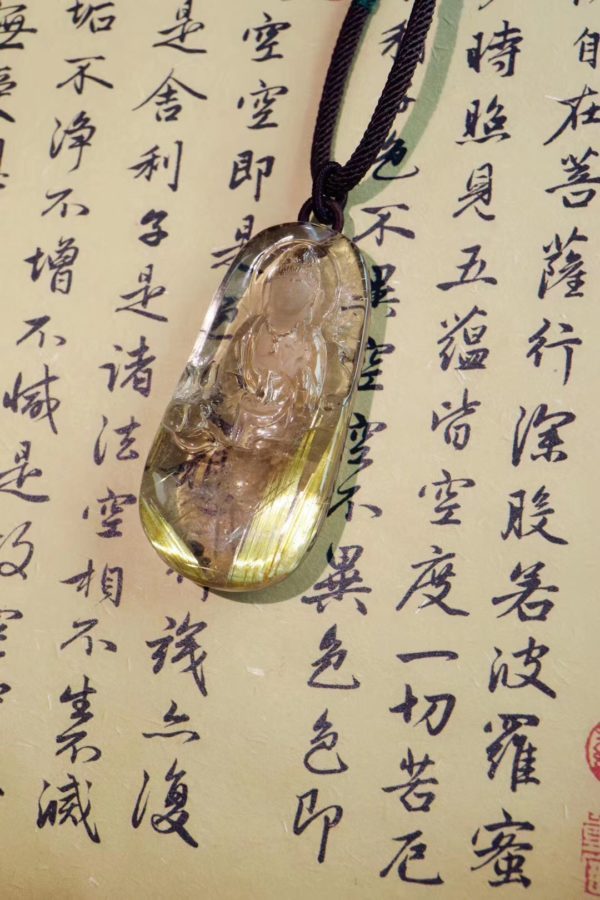 自在菩薩行深般若波羅蜜
時照見五蘊皆空度一切苦厄
利子色不異空空不異色色即
空空即是色識亦復
是舍利子是諸法空相不生不滅
垢不淨不增不減是故空
無受